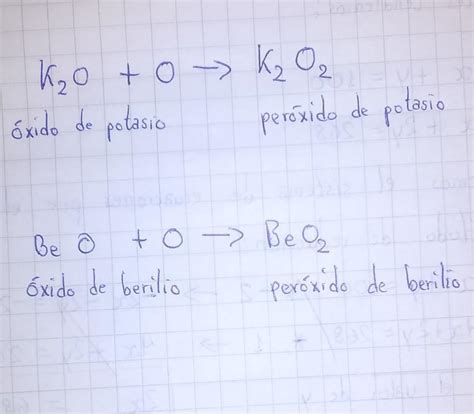 K₂O + O → K₂O₂
óxido de potasio peróxido de potasio
BeO + O → BeO₂
óxido de berilio peróxido de berilio